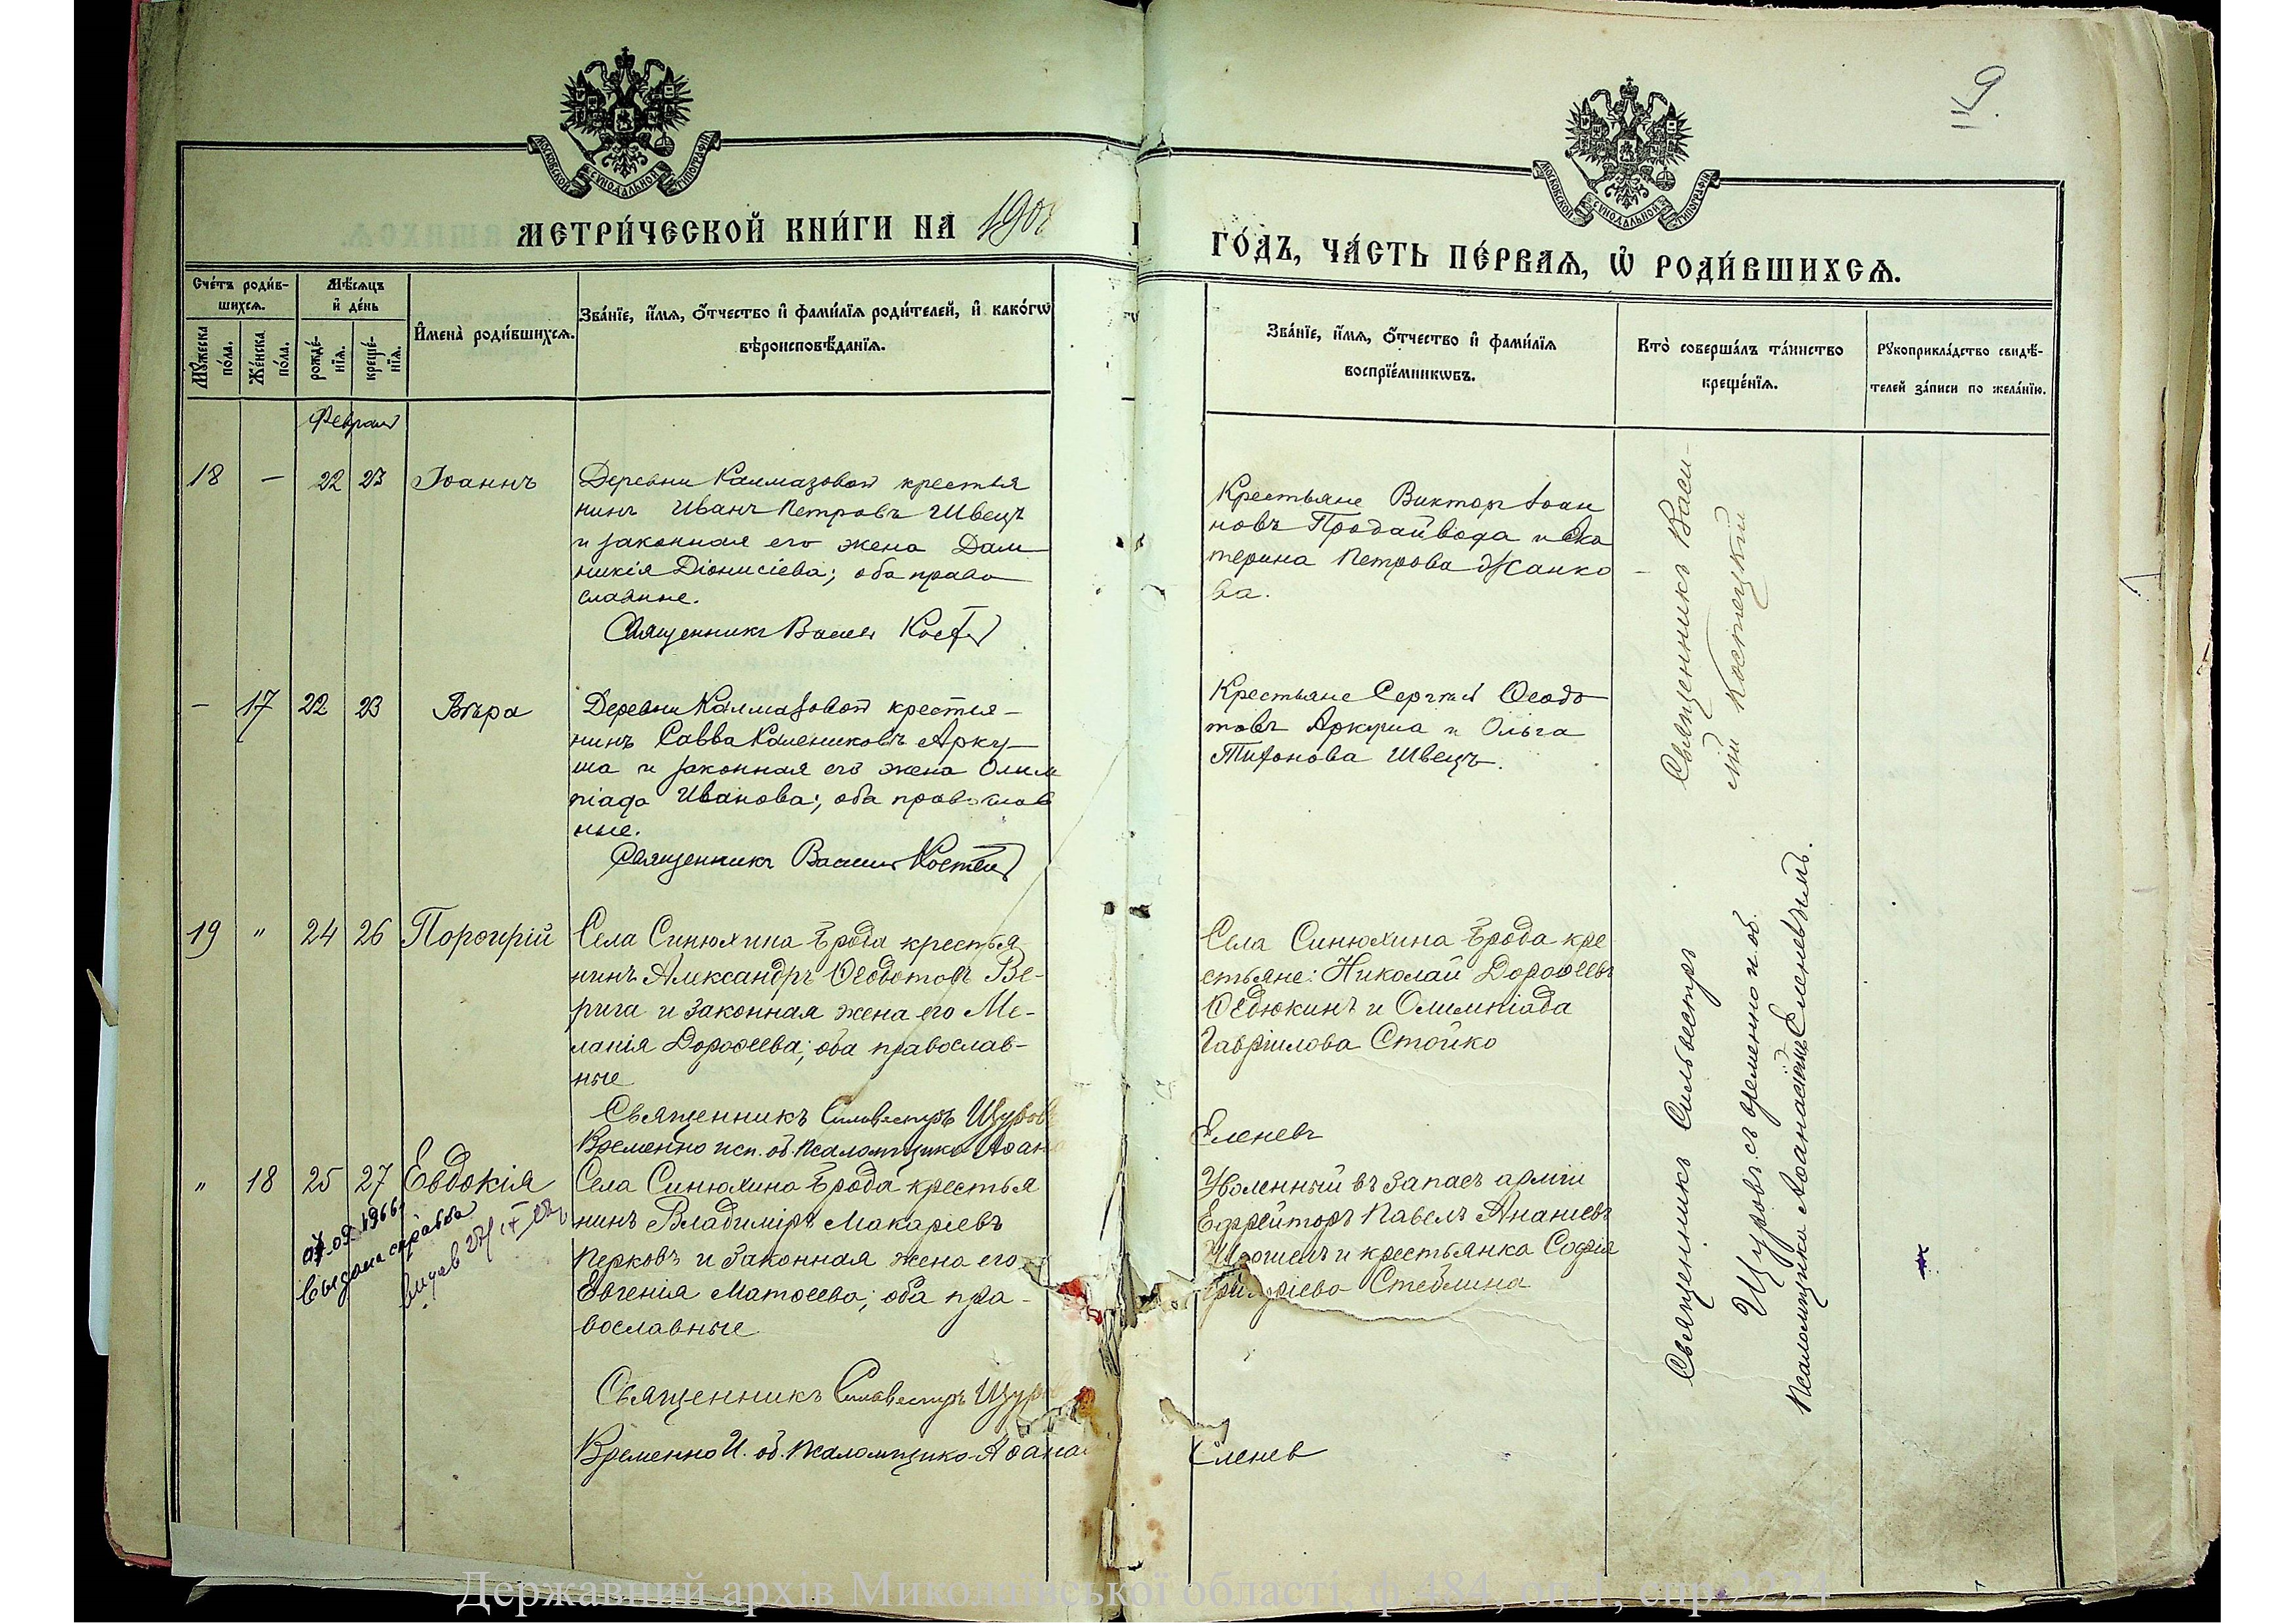 9.
МОСКОВСКОЙ СѴНОДАЛЬНОЙ ТИПОГРАФІИ
МОСКОВСКОЙ СѴНОДАЛЬНОЙ ТИПОГРАФІИ
МЕТРИ́ЧЕСКОЙ КНИ́ГИ НА 190
ГО́ДЪ, ЧА́СТЬ ПЕ́РВАѦ, Ѡ҆ РОДИ́ВШИХСѦ.
Сче́тъ роди́в-
шихсѧ.
Мѣ́сѧцъ
и҆ де́нь
Мꙋ́жеска по́ла.
Же́нска по́ла.
рожде́-нїѧ.
креще́-нїѧ.
И҆мена̀ роди́вшихсѧ.
Зва́нїе, и҆́мѧ, ѻ҆́тчество и҆ фами́лїѧ роди́телей, и҆ како́гѡ
вѣроисповѣ́данїѧ.
Зва́нїе, и҆́мѧ, ѻ҆́тчество и҆ фами́лїѧ
воспрїе́мникѡвъ.
Кто̀ соверша́лъ та́инство
креще́нїѧ.
Рꙋкоприкла́дство свидѣ́-
телей за́писи по жела́нїю.
Февраля
18 — 22 23 Іоаннъ
Деревни Калмазовой крестья
нинъ Иванъ Петровъ Швецъ
и законная его жена Дом
никія Діонисіева; оба право
славные.
Священникъ Василій
Крестьяне Викторъ Іоан
новъ Продайвода и Ека
терина Петрова Жанко
ва.
Священникъ Васи-
лій Костецкій
— 17 22 23 Вѣра
Деревни Калмазовой крестья-
нинъ Савва Калениковъ Арку-
ша и законная его жена Олим
піада Иванова; оба православ
ные.
Священникъ Василій
Крестьяне Сергѣй Ѳеодо
товъ Аркуша и Ольга
Тихонова Швецъ.
19 " 24 26 Порфирій
Села Синюхина Брода крестья
нинъ Александръ Ѳеодотовъ Ве-
рига и законная жена его Ме-
ланія Дороѳеева; оба православ-
ные
Священникъ Сильвестръ Щуровъ
Временно исп. об. псаломщика Аѳана
Села Синюхина Брода кре
стьяне: Николай Дороѳеевъ
Ѳедюкинъ и Олимпіада
Гавріилова Стойко
Еленевъ
Священникъ Сильвестръ
Щуровъ съ временно и. об.
псаломщика Аѳанасіемъ Еленевымъ.
" 18 25 27 Евдокія
07.09.1966г
выдана справка
Села Синюхина Брода крестья
нинъ Владиміръ Макаріевъ
Перковъ и законная жена его
Евгенія Матѳеева; оба пра-
вославные
Священникъ Сильвестръ Щуро
Временно И. об. псаломщика Аѳана
Уволенный въ запасъ арміи
Ефрейторъ Павелъ Ананіевъ
и крестьянка Софія
Стеблина
Еленев
Державний архів Миколаївської області, ф.484, оп.1, спр.2224